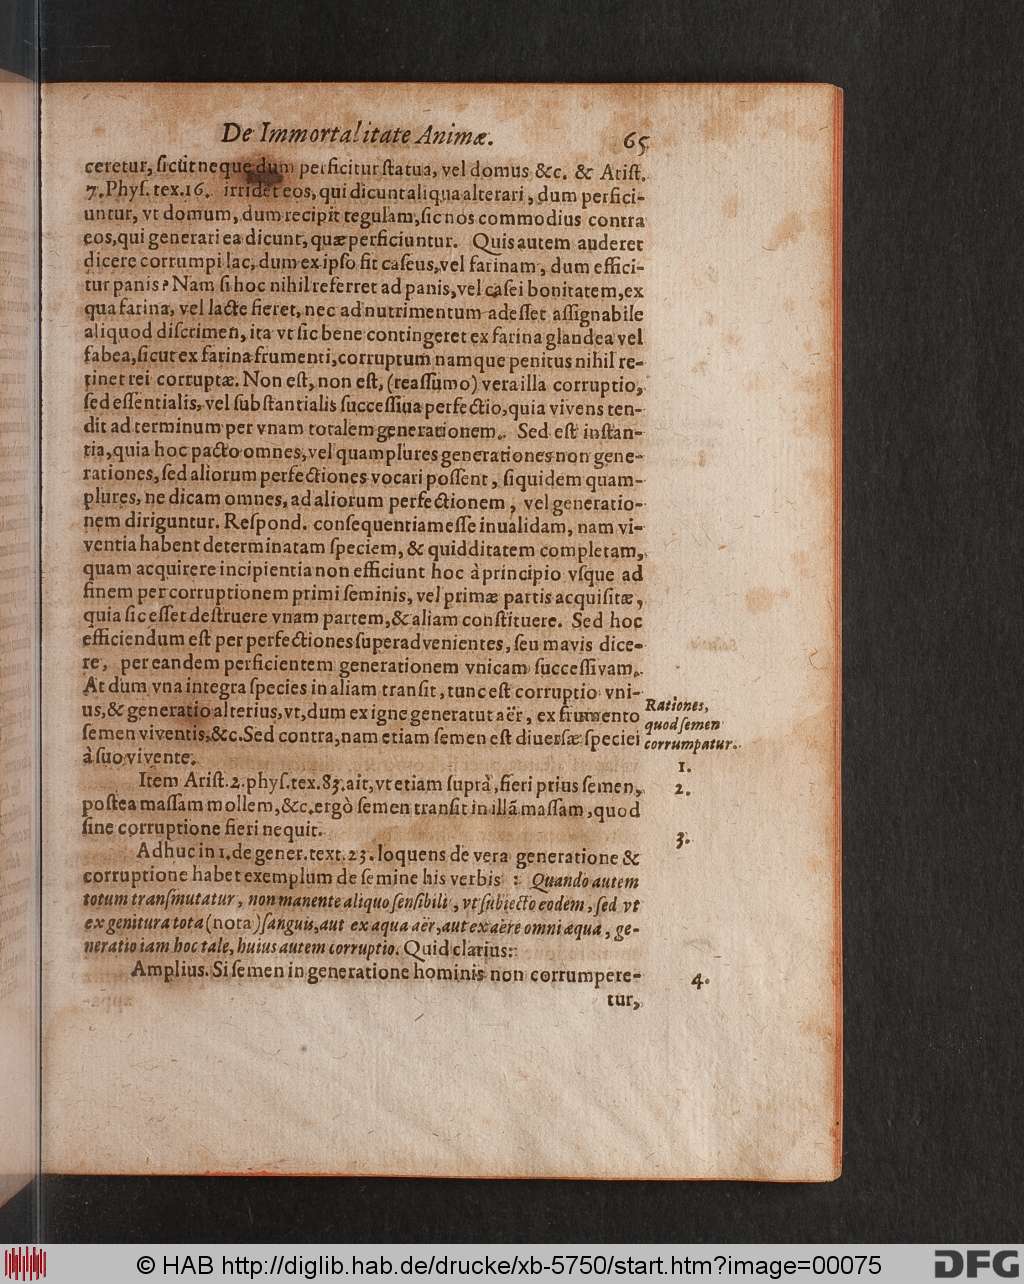 De Immortalitate Animæ. 65
ceretur, ſicūt neque dum perficitur ſtatua, vel domus &c. & Ariſt.
7. Phyſ. tex. 16. irridēt eos, qui dicunt aliqua alterari, dum perfici-
untur, vt domum, dum recipit tegulam, ſic nos commodius contra
eos, qui generari ea dicunt, quæ perficiuntur. Quis autem auderet
dicere corrumpi lac, dum ex ipſo fit caſeus, vel farinam, dum effici-
tur panis? Nam ſi hoc nihil referret ad panis, vel caſei bonitatem, ex
qua farina, vel lacte fieret, nec ad nutrimentum adeſſet aſſignabile
aliquod diſcrimen, ita vt ſic bene contingeret ex farina glandea vel
fabea, ſicut ex farina frumenti, corruptum namque penitus nihil re-
tinet rei corruptæ. Non eſt, non eſt, (reaſſumo) vera illa corruptio,
ſed eſſentialis, vel ſubſtantialis ſucceſſiua perfectio, quia vivens ten-
dit ad terminum per vnam totalem generationem. Sed eſt inſtan-
tia, quia hoc pacto omnes, vel quamplures generationes non gene-
rationes, ſed aliorum perfectiones vocari poſſent, ſiquidem quam-
plures, ne dicam omnes, ad aliorum perfectionem, vel generatio-
nem diriguntur. Reſpond. conſequentiam eſſe inualidam, nam vi-
ventia habent determinatam ſpeciem, & quidditatem completam,
quam acquirere incipientia non efficiunt hoc à principio vſque ad
finem per corruptionem primi ſeminis, vel primæ partis acquiſitæ,
quia ſic eſſet deſtruere vnam partem, & aliam conſtituere. Sed hoc
efficiendum eſt per perfectiones ſuperadvenientes, ſeu mavis dice-
re, per eandem perficientem generationem vnicam ſucceſſivam.
At dum vna integra ſpecies in aliam tranſit, tunc eſt corruptio vni-
us, & generatio alterius, vt, dum ex igne generatut aër, ex frumento
ſemen viventis, &c. Sed contra, nam etiam ſemen eſt diuerſæ ſpeciei
à ſuo vivente.
Rationes,
quod ſemen
corrumpatur.
1.
Item Ariſt. 2. phyſ. tex. 83. ait, vt etiam ſuprà, fieri prius ſemen,
2.
poſtea maſſam mollem, &c. ergò ſemen tranſit in illā maſſam, quod
ſine corruptione fieri nequit.
3.
Adhuc in 1. de gener. text. 23. loquens de vera generatione &
corruptione habet exemplum de ſemine his verbis : Quando autem
totum tranſmutatur, non manente aliquo ſenſibili, vt ſubiecto eodem, ſed vt
ex genitura tota (nota) ſanguis, aut ex aqua aër, aut ex aëre omni æqua, ge-
neratio iam hoc tale, huius autem corruptio. Quid clarius:
Amplius. Si ſemen in generatione hominis non corrumpere-
4.
tur,
© HAB http://diglib.hab.de/drucke/xb-5750/start.htm?image=00075
DFG